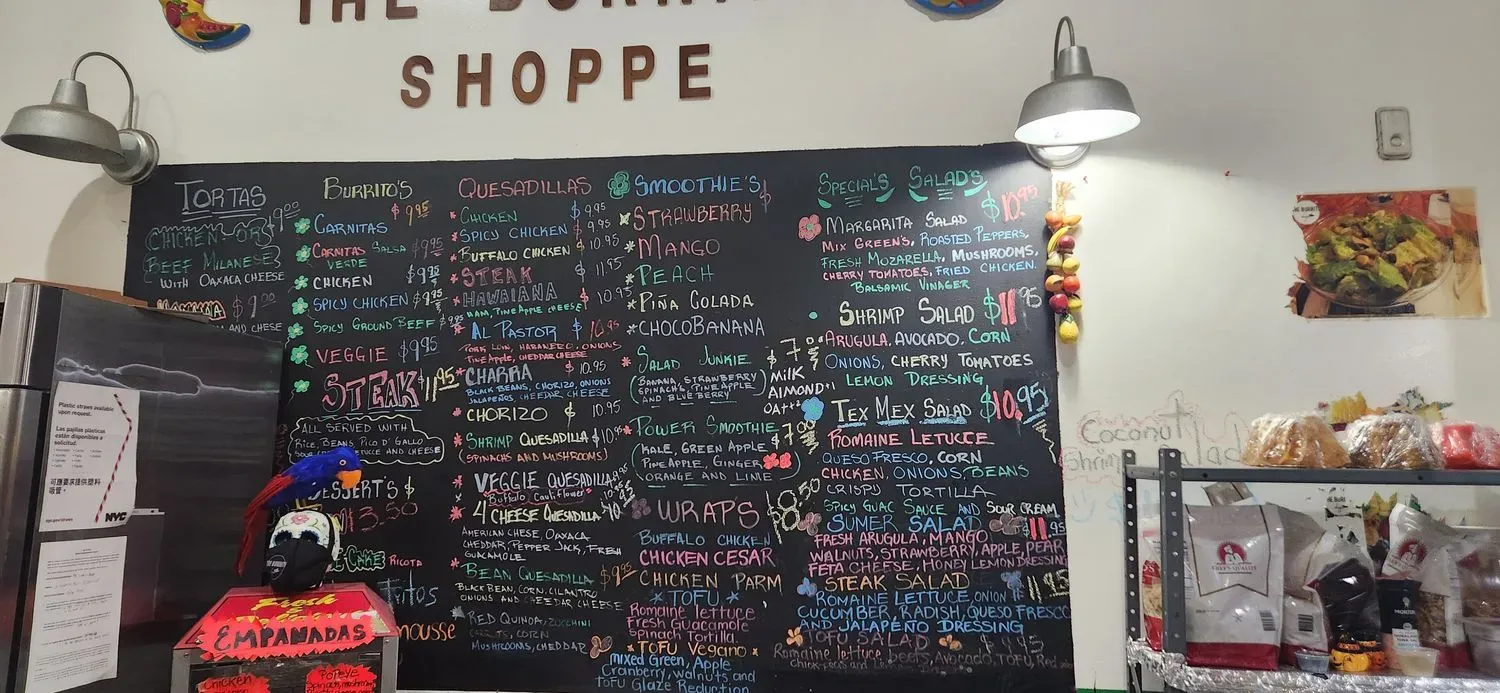 SHOPPE
TORTAS
$9.00
CHICKEN OR
BEEF MILANESE
WITH OAXACA CHEESE
$9.00
AND CHESE
DESSERT'S $
3.50
RICOTA
BURRITO'S
$9.95
CARNITAS
CARNITAS SALSA $9.95
VERDE
CHICKEN $9.95
SPICY CHICKEN $9.95
SPICY GROUND BEEF $9.95
VEGGIE $9.95
STEAK $11.95
ALL SERVED WITH
RICE, BEANS, PICO D' GALLO
LETTUCE AND CHEESE
QUESADILLAS
CHICKEN $9.95
SPICY CHICKEN $9.95
BUFFALO CHICKEN $10.95
STEAK $11.95
HAWAIANA $10.95
HAM, PINEAPPLE CHEESE
AL PASTOR $10.95
PORK LOIN, HABANERO, ONIONS
PINEAPPLE, CHEDDAR CHEESE
CHARRA $10.95
BLACK BEANS, CHORIZO, ONIONS
JALAPEÑOS, CHEEDAR CHEESE
CHORIZO $10.95
SHRIMP QUESADILLA $10.95
(SPINACHS AND MUSHROOMS)
VEGGIE QUESADILLA
Buffalo Cauliflower
4 CHEESE QUESADILLA
AMERICAN CHESE, OAXACA
CHEDDAR, PEPPER JACK, FRESH
GUACAMOLE
BEAN QUESADILLA $9.95
BLACK BEAN, CORN, CILANTRO
ONIONS AND CHEEDAR CHEESE
RED QUINOA, ZUCCHINI
CARROTS, CORN
MUSHROOMS, CHEDDAR
SMOOTHIE'S
STRAWBERRY
MANGO
PEACH
PIÑA COLADA
CHOCOBANANA
SALAD JUNKIE
(BANANA, STRAWBERRY
SPINACHS, PINEAPPLE
AND BLUE BERRY)
MILK
AlMOND
OAT
POWER SMOOTHIE
(KALE, GREEN APPLE
PINEAPPLE, GINGER
ORANGE AND LIME
WRAP'S $8.50
BUFFALO CHICKEN
CHICKEN CESAR
CHICKEN PARM
TOFU
Romaine lettuce
Fresh Guacamole
Spinach Tortilla.
TOFU Vegano
mixed Green, Apple
Cranberry, walnuts and
TOFU Glaze Reduction
SPECIAL'S SALAD'S
$10.95
MARGARITA SALAD
MIX GREEN'S, ROASTED PEPPERS,
FRESH MOZARELLA, MUSHROOMS,
CHERRY TOMATOES, FRIED CHICKEN.
BALSAMIC VINAGER
SHRIMP SALAD $11.95
ARUGULA, AVOCADO, CORN
ONIONS, CHERRY TOMATOES
LEMON DRESSING
TEX MEX SALAD $10.95
ROMAINE LETUCCE
QUESO FRESCO, CORN
CHICKEN, ONIONS, BEANS
CRISPY TORTILLA
SPICY GUAC SAUCE AND SOUR CREAM
SUMER SALAD $11.95
FRESH ARUGULA, MANGO
WALNUTS, STRAWBERRY, APPLE, PEAR
FETA CHEESE, HONEY LEMON DRESSING
STEAK SALAD 11.95
ROMAINE LETUCE, ONION
CUCUMBER, RADISH, QUESO FRESCO
AND JALAPEÑO DRESSING
TOFU SALAD
Romaine lettuce, beets, Avocado, TOFU, Red
Coconut
Shrimp Salad
Plastic straws available
upon request.
Las pajillas plásticas
están disponibles a
solicitud.
可應要求提供塑料
吸管。
NYC
Fresh
EMPANADAS
Chicken
POPEYE